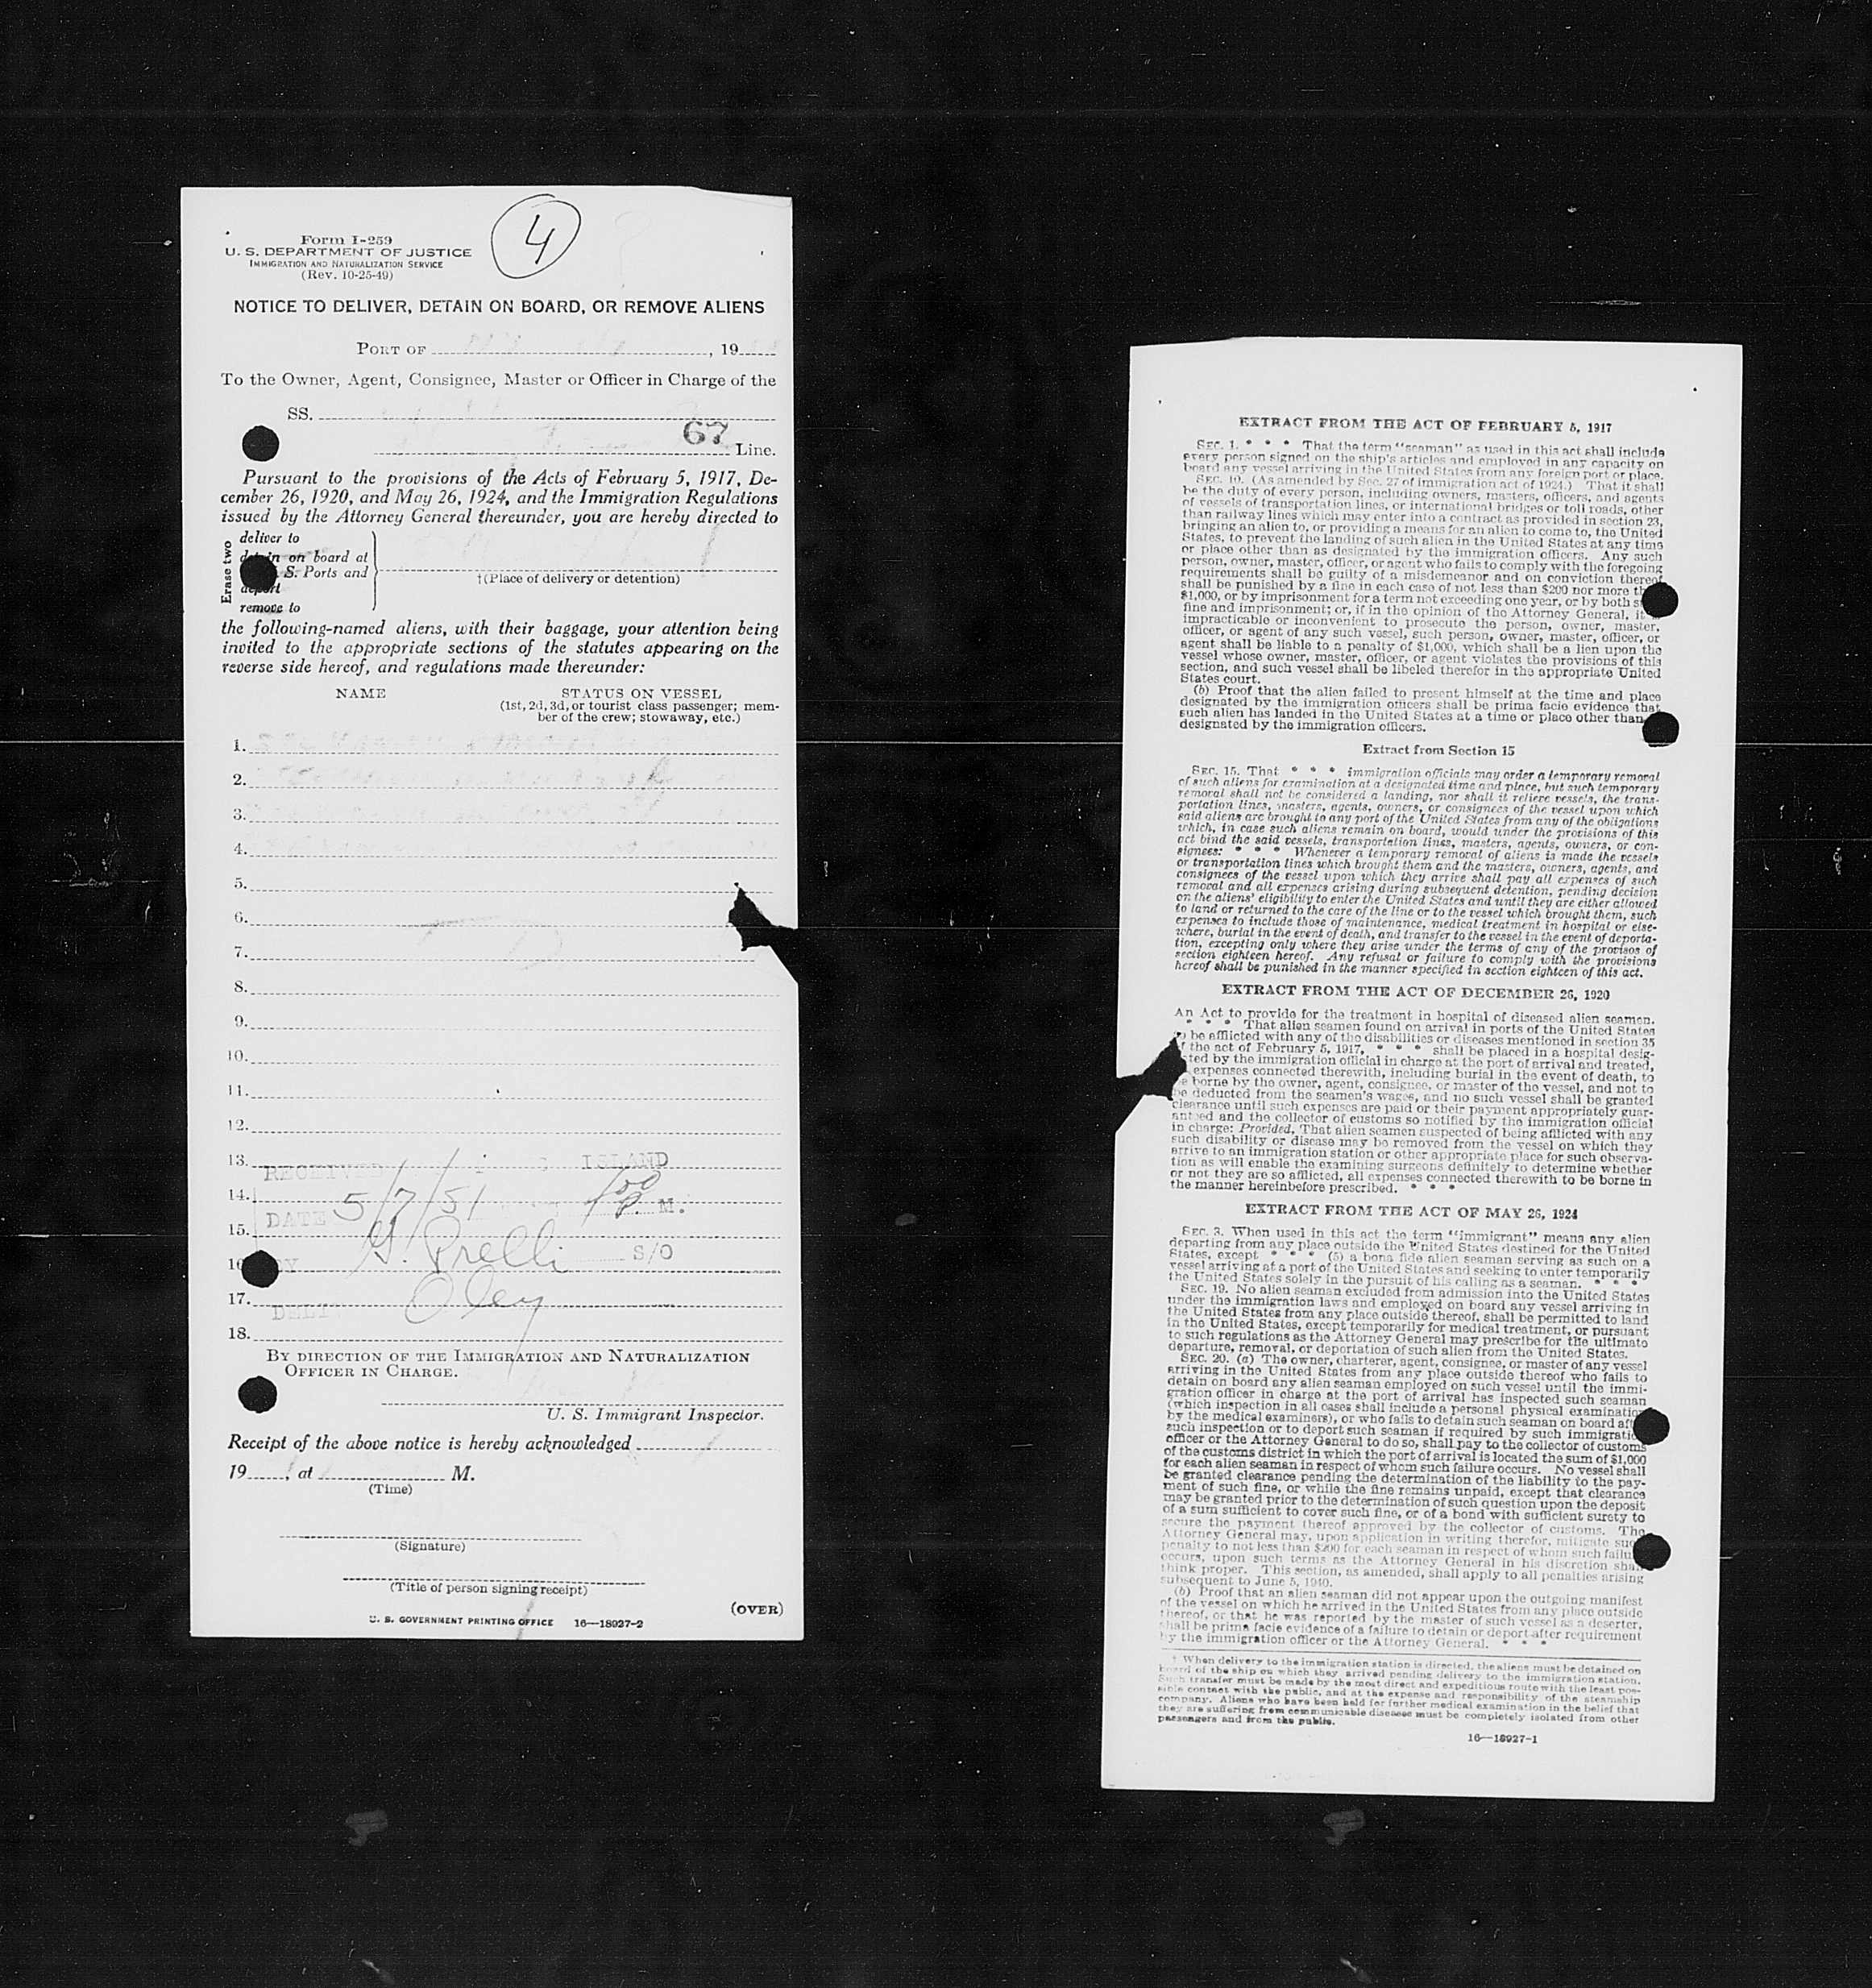 4
Form I-259
U. S. DEPARTMENT OF JUSTICE
IMMIGRATION AND NATURALIZATION SERVICE
(Rev. 10-25-49)
NOTICE TO DELIVER, DETAIN ON BOARD, OR REMOVE ALIENS
PORT OF , 19
To the Owner, Agent, Consignee, Master or Officer in Charge of the
SS.
67
Line.
Pursuant to the provisions of the Acts of February 5, 1917, De-
cember 26, 1920, and May 26, 1924, and the Immigration Regulations
issued by the Attorney General thereunder, you are hereby directed to
Erase two
deliver to
detain on board at
S. Ports and
deport
remove to
†(Place of delivery or detention)
the following-named aliens, with their baggage, your attention being
invited to the appropriate sections of the statutes appearing on the
reverse side hereof, and regulations made thereunder:
NAME STATUS ON VESSEL
(1st, 2d, 3d, or tourist class passenger; mem-
ber of the crew; stowaway, etc.)
1.
2.
3.
4.
5.
6.
7.
8.
9.
10.
11.
12.
13.
RECEIVED ISLAND
14.
DATE 5/7/51 100 P. M.
15.
G. Prelli S/O
16
17.
Oley
18.
BY DIRECTION OF THE IMMIGRATION AND NATURALIZATION
OFFICER IN CHARGE.
U. S. Immigrant Inspector.
Receipt of the above notice is hereby acknowledged
19 , at M.
(Time)
(Signature)
(Title of person signing receipt)
(OVER)
U. S. GOVERNMENT PRINTING OFFICE 16—18927-2
EXTRACT FROM THE ACT OF FEBRUARY 5, 1917
SEC. 1. * * * That the term "seaman" as used in this act shall include
every person signed on the ship's articles and employed in any capacity on
board any vessel arriving in the United States from any foreign port or place.
SEC. 10. (As amended by Sec. 27 of immigration act of 1924.) That it shall
be the duty of every person, including owners, masters, officers, and agents
of vessels of transportation lines, or international bridges or toll roads, other
than railway lines which may enter into a contract as provided in section 23,
bringing an alien to, or providing a means for an alien to come to, the United
States, to prevent the landing of such alien in the United States at any time
or place other than as designated by the immigration officers. Any such
person, owner, master, officer, or agent who fails to comply with the foregoing
requirements shall be guilty of a misdemeanor and on conviction thereof
shall be punished by a fine in each case of not less than $200 nor more th
$1,000, or by imprisonment for a term not exceeding one year, or by both s
fine and imprisonment; or, if in the opinion of the Attorney General, it
impracticable or inconvenient to prosecute the person, owner, master,
officer, or agent of any such vessel, such person, owner, master, officer, or
agent shall be liable to a penalty of $1,000, which shall be a lien upon the
vessel whose owner, master, officer, or agent violates the provisions of this
section, and such vessel shall be libeled therefor in the appropriate United
States court.
(b) Proof that the alien failed to present himself at the time and place
designated by the immigration officers shall be prima facie evidence that
such alien has landed in the United States at a time or place other than
designated by the immigration officers.
Extract from Section 15
SEC. 15. That * * * immigration officials may order a temporary removal
of such aliens for examination at a designated time and place, but such temporary
removal shall not be considered a landing, nor shall it relieve vessels, the trans-
portation lines, masters, agents, owners, or consignees of the vessel upon which
said aliens are brought to any port of the United States from any of the obligations
which, in case such aliens remain on board, would under the provisions of this
act bind the said vessels, transportation lines, masters, agents, owners, or con-
signees: * * * Whenever a temporary removal of aliens is made the vessels
or transportation lines which brought them and the masters, owners, agents, and
consignees of the vessel upon which they arrive shall pay all expenses of such
removal and all expenses arising during subsequent detention, pending decision
on the aliens' eligibility to enter the United States and until they are either allowed
to land or returned to the care of the line or to the vessel which brought them, such
expenses to include those of maintenance, medical treatment in hospital or else-
where, burial in the event of death, and transfer to the vessel in the event of deporta-
tion, excepting only where they arise under the terms of any of the provisos of
section eighteen hereof. Any refusal or failure to comply with the provisions
hereof shall be punished in the manner specified in section eighteen of this act.
EXTRACT FROM THE ACT OF DECEMBER 26, 1920
An Act to provide for the treatment in hospital of diseased alien seamen.
* * * That alien seamen found on arrival in ports of the United States
to be afflicted with any of the disabilities or diseases mentioned in section 35
f the act of February 5, 1917, * * * shall be placed in a hospital desig-
ted by the immigration official in charge at the port of arrival and treated,
expenses connected therewith, including burial in the event of death, to
e borne by the owner, agent, consignee, or master of the vessel, and not to
be deducted from the seamen's wages, and no such vessel shall be granted
clearance until such expenses are paid or their payment appropriately guar-
anteed and the collector of customs so notified by the immigration official
in charge: Provided, That alien seamen suspected of being afflicted with any
such disability or disease may be removed from the vessel on which they
arrive to an immigration station or other appropriate place for such observa-
tion as will enable the examining surgeons definitely to determine whether
or not they are so afflicted, all expenses connected therewith to be borne in
the manner hereinbefore prescribed. * * *
EXTRACT FROM THE ACT OF MAY 26, 1924
SEC. 3. When used in this act the term "immigrant" means any alien
departing from any place outside the United States destined for the United
States, except * * * (5) a bona fide alien seaman serving as such on a
vessel arriving at a port of the United States and seeking to enter temporarily
the United States solely in the pursuit of his calling as a seaman. * * *
SEC. 19. No alien seaman excluded from admission into the United States
under the immigration laws and employed on board any vessel arriving in
the United States from any place outside thereof, shall be permitted to land
in the United States, except temporarily for medical treatment, or pursuant
to such regulations as the Attorney General may prescribe for the ultimate
departure, removal, or deportation of such alien from the United States.
SEC. 20. (a) The owner, charterer, agent, consignee, or master of any vessel
arriving in the United States from any place outside thereof who fails to
detain on board any alien seaman employed on such vessel until the immi-
gration officer in charge at the port of arrival has inspected such seaman
(which inspection in all cases shall include a personal physical examination
by the medical examiners), or who fails to detain such seaman on board aft
such inspection or to deport such seaman if required by such immigratio
officer or the Attorney General to do so, shall pay to the collector of customs
of the customs district in which the port of arrival is located the sum of $1,000
for each alien seaman in respect of whom such failure occurs. No vessel shall
be granted clearance pending the determination of the liability to the pay-
ment of such fine, or while the fine remains unpaid, except that clearance
may be granted prior to the determination of such question upon the deposit
of a sum sufficient to cover such fine, or of a bond with sufficient surety to
secure the payment thereof approved by the collector of customs. The
Attorney General may, upon application in writing therefor, mitigate suc
penalty to not less than $200 for each seaman in respect of whom such failu
occurs, upon such terms as the Attorney General in his discretion shal
think proper. This section, as amended, shall apply to all penalties arising
subsequent to June 5, 1940.
(b) Proof that an alien seaman did not appear upon the outgoing manifest
of the vessel on which he arrived in the United States from any place outside
thereof, or that he was reported by the master of such vessel as a deserter,
shall be prima facie evidence of a failure to detain or deport after requirement
by the immigration officer or the Attorney General. * * *
† When delivery to the immigration station is directed, the aliens must be detained on
board of the ship on which they arrived pending delivery to the immigration station.
Such transfer must be made by the most direct and expeditious route with the least pos-
sible contact with the public, and at the expense and responsibility of the steamship
company. Aliens who have been held for further medical examination in the belief that
they are suffering from communicable disease must be completely isolated from other
passengers and from the public.
16—18927-1